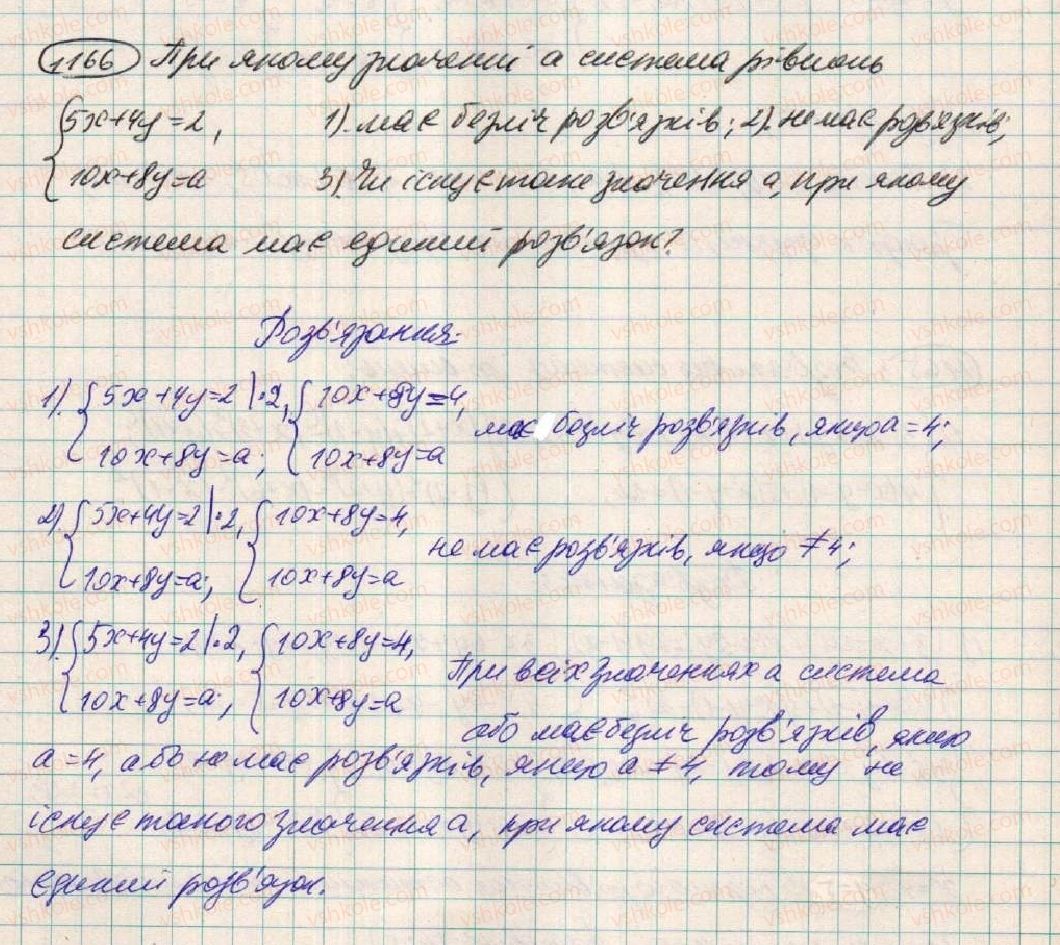 1166 При якому значенні а система рівнянь
{5x+4y=2, 1). має безліч розв'язків; 2). не має розв'язків;
10x+8y=a 3). Чи існує таке значення а, при якому
система має єдиний розв'язок?
Розв'язання:
1). {5x+4y=2 |·2, {10x+8y=4,
10x+8y=a; 10x+8y=a має безліч розв'язків, якщо a=4;
2). {5x+4y=2 |·2, {10x+8y=4,
10x+8y=a; 10x+8y=a не має розв'язків, якщо ≠4;
3). {5x+4y=2 |·2, {10x+8y=4,
10x+8y=a; 10x+8y=a При всіх значеннях а система
або має безліч розв'язків, якщо
a=4, або не має розв'язків, якщо a≠4, тому не
існує такого значення а, при якому система має
єдиний розв'язок.